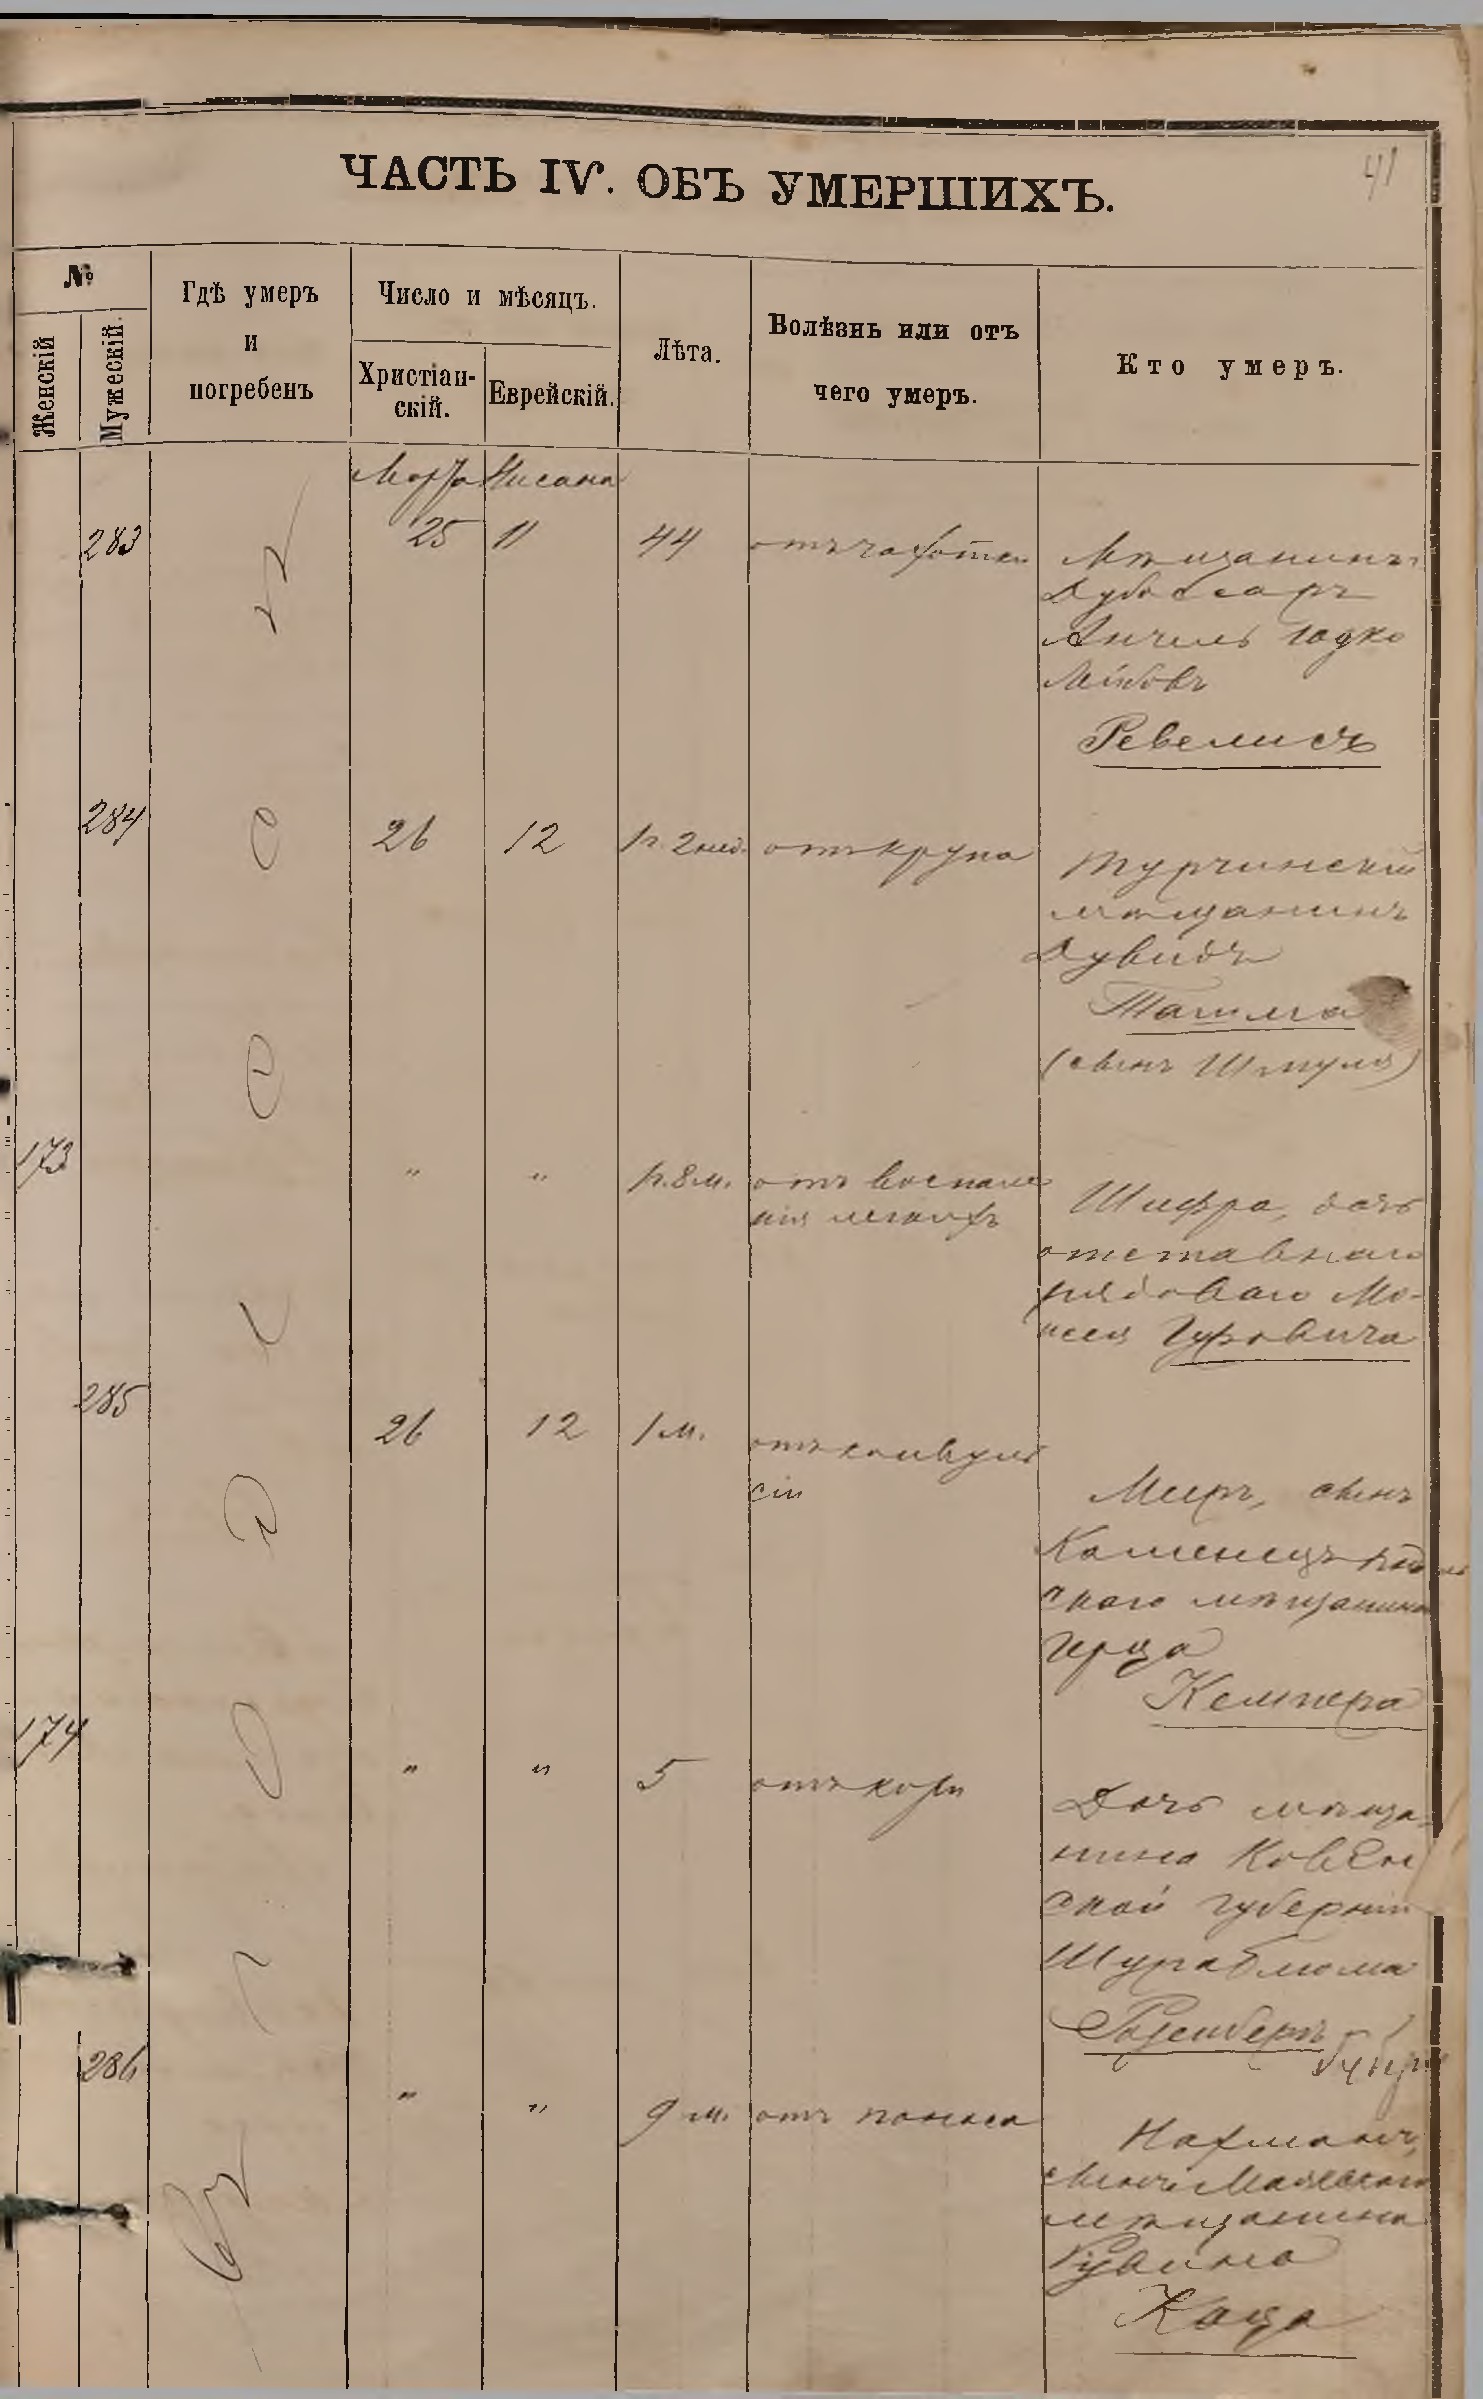 41
ЧАСТЬ IV. ОБЪ УМЕРШИХЪ.
№
Женскій
Мужескій.
Гдѣ умеръ
и
погребенъ
Число и мѣсяцъ.
Христіан-
скій.
Еврейскій.
Лѣта.
Болѣзнь или отъ
чего умеръ.
Кто умеръ.
въ г. Одессѣ
Марта Нисана
283 25 11 44 отъ чахотки Мѣщанинъ
Дубоссаръ
Анчель
Лейбовъ
Ревелисъ
284 26 12 1 г. 2 нед. отъ крупа Турчинскій
мѣщанинъ
Дувидъ
Ташма
(сынъ Шмуля)
173 " " 1 г. 8 м. отъ воспале
нія легкихъ
Шифра, дочь
отставнаго
рядоваго Мо-
исея Гуровича
285 26 12 1 м. отъ конвуль
сіи
Мееръ, сынъ
Каменецъ-
скаго мѣщанина
Герца
Кемпера
174 " " 5 отъ кори Дочь мѣща-
нина Ковен
ской губерніи
Розенберъ
286 " " 9 м. отъ поноса Нахманъ,
сынъ
мѣщанина
Рувина
Каца